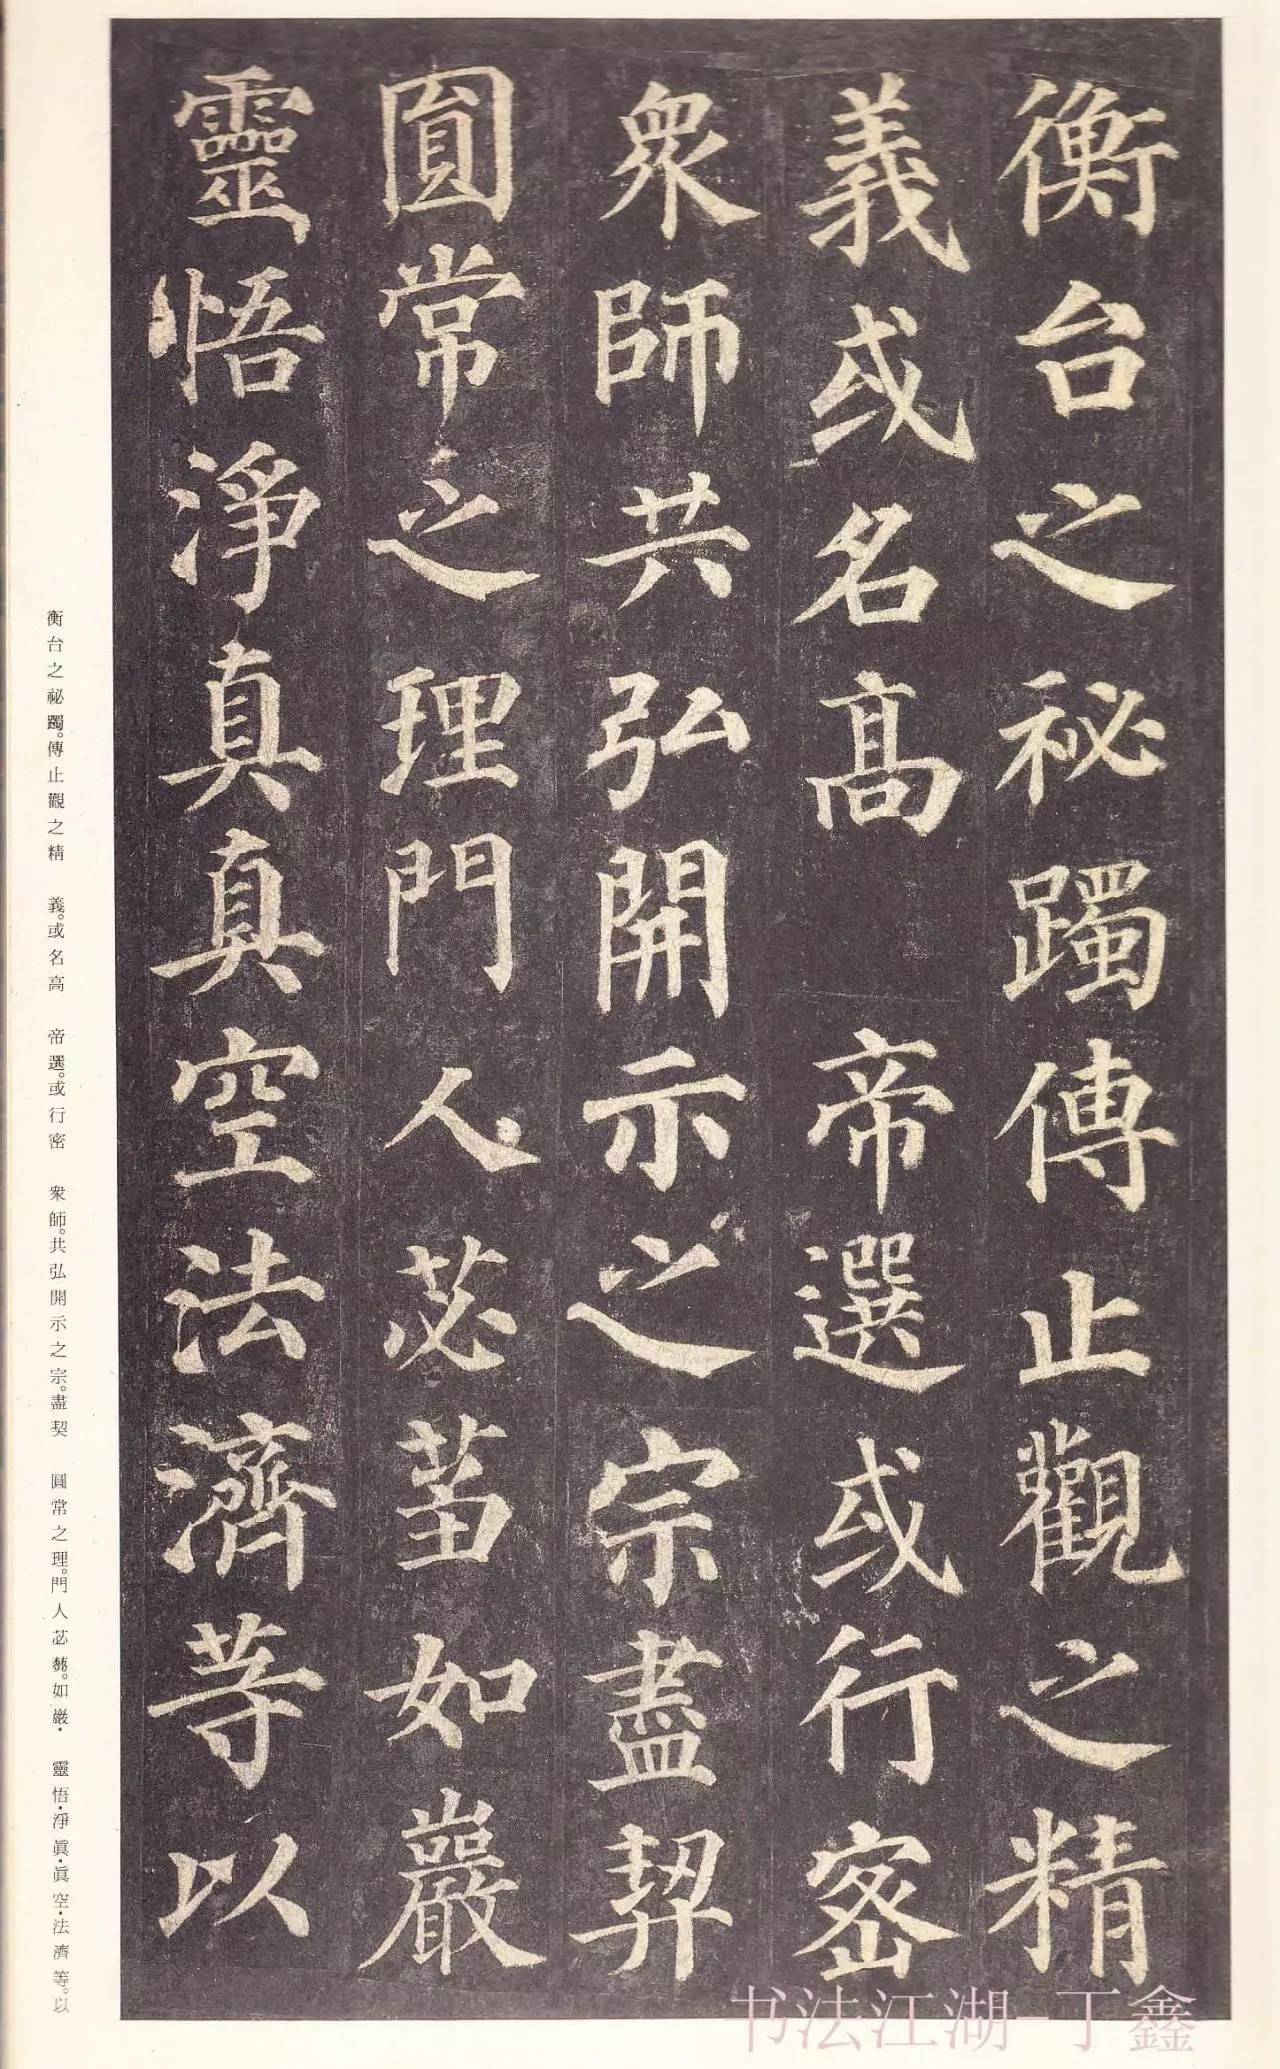 衡台之祕躅傳止觀之精
義或名高 帝選或行密
衆師共弘開示之宗盡契
圓常之理門人苾蒭如巖
靈悟淨真真空法濟等以
衡台之祕躅。傳止觀之精 義。或名高 帝選。或行密 衆師。共弘開示之宗。盡契 圓常之理。門人苾蒭。如巖・ 靈悟・淨眞・眞空・法濟等。以
书法江湖-丁鑫